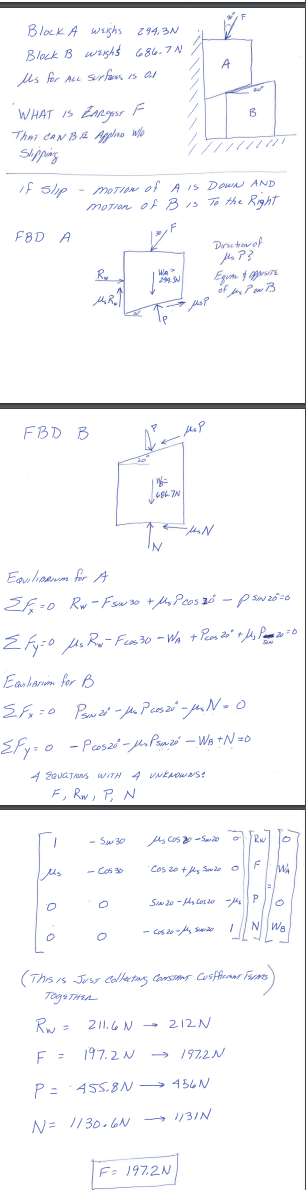 Block A weighs 294.3N
30° F
Block B weighs 686.7N
μs for all surfaces is 0.1
A
20°
B
WHAT IS LARGEST F
THAT CAN BE Applied w/o
Slipping
if Slip - motion of A is DOWN AND
motion of B is To the Right
FBD A
F
Direction of
μsP?
Equal & opposite
of μsP on B
Rw
WA =
294.3N
μsRw
μsP
20°
P
FBD B
P
μsP
20°
WB=
686.7N
μsN
N
Equilibrium for A
ΣFx=0 Rw - Fsin30 + μsPcos20° - Psin20°=0
ΣFy=0 μsRw - Fcos30 - WA + Pcos20° + μsPsin20=0
Equilibrium for B
ΣFx=0 Psin20° - μsPcos20° - μsN = 0
ΣFy=0 -Pcos20° - μsPsin20° - WB + N = 0
4 EQUATIONS WITH 4 UNKNOWNS:
F, Rw, P, N
1 - Sin30 μsCos20-Sin20 0 Rw 0
μs - Cos30 Cos20 + μs Sin20 0 F WA
=
0 0 Sin20 - μsCos20 -μs P 0
0 0 - Cos20 - μs Sin20 1 N WB
(This is Just Collecting Constant Coefficient Terms)
Together
Rw = 211.6N → 212N
F = 197.2N → 197.2N
P = 455.8N → 456N
N = 1130.6N → 1131N
F = 197.2N